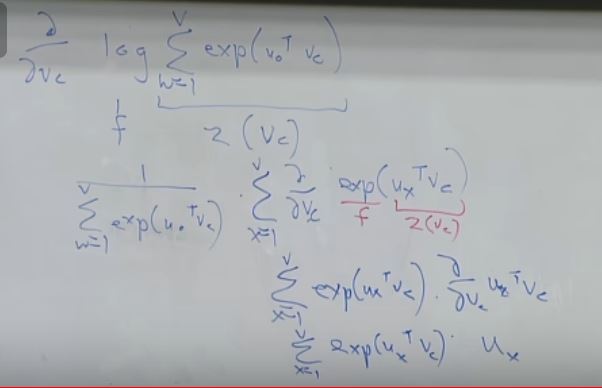 ∂/∂v_c log Σ_{w=1}^{V} exp(u_o^T v_c)
f z(v_c)
1/(Σ_{w=1}^{V} exp(u_o^T v_c)) · Σ_{x=1}^{V} ∂/∂v_c exp(u_x^T v_c)
f z(v_c)
Σ_{x=1}^{V} exp(u_x^T v_c) · ∂/∂v_c u_x^T v_c
Σ_{x=1}^{V} exp(u_x^T v_c) · u_x